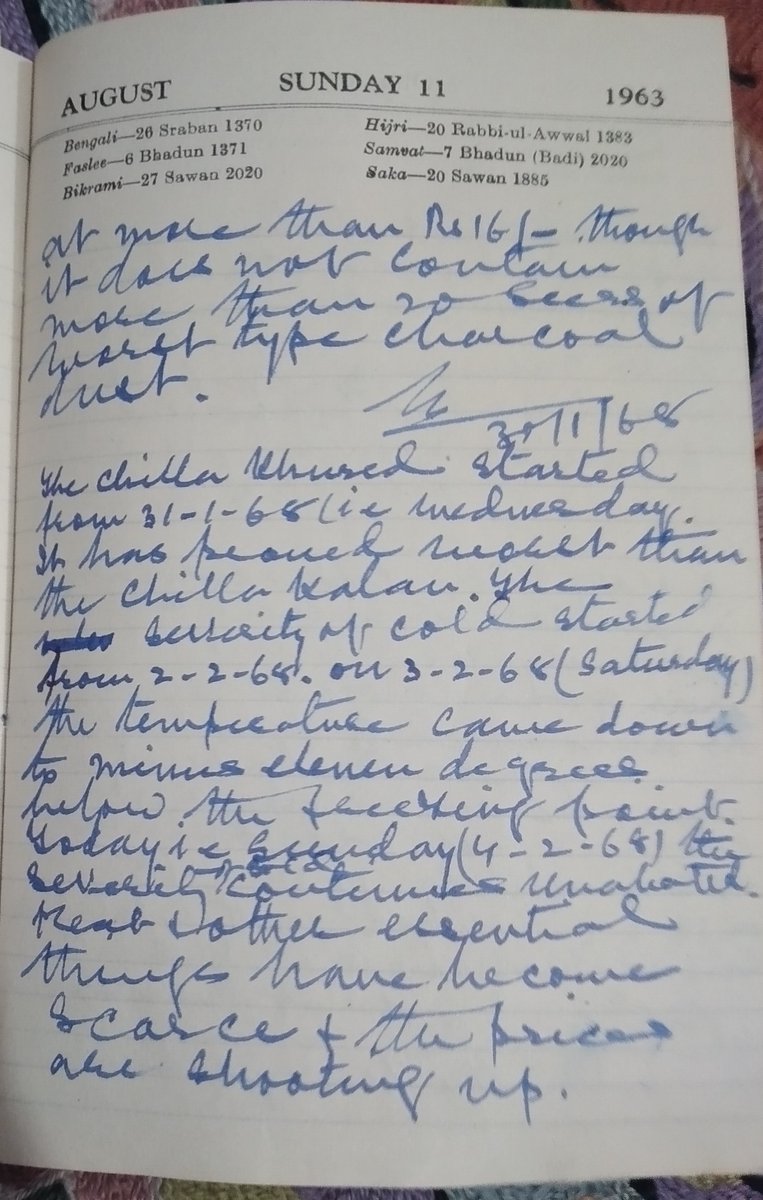 AUGUST SUNDAY 11 1963
Bengali—26 Sraban 1370 Hijri—20 Rabbi-ul-Awwal 1383
Faslee—6 Bhadun 1371 Samvat—7 Bhadun (Badi) 2020
Bikrami—27 Sawan 2020 Saka—20 Sawan 1885
at more than Rs 16/- though
it does not contain
more than 20 seers of
worst type charcoal
dust.
30/1/68
The Chilla Khured started
from 31-1-68 (i.e Wednesday.
It has proved worst than
the Chilla Kalan. The
severity of cold started
from 2-2-68. On 3-2-68 (Saturday)
the temperature came down
to minus eleven degrees
below the freezing point.
Today i.e Sunday (4-2-68) the
severity of cold continues unabated.
Meat & other essential
things have become
scarce & the prices
are shooting up.